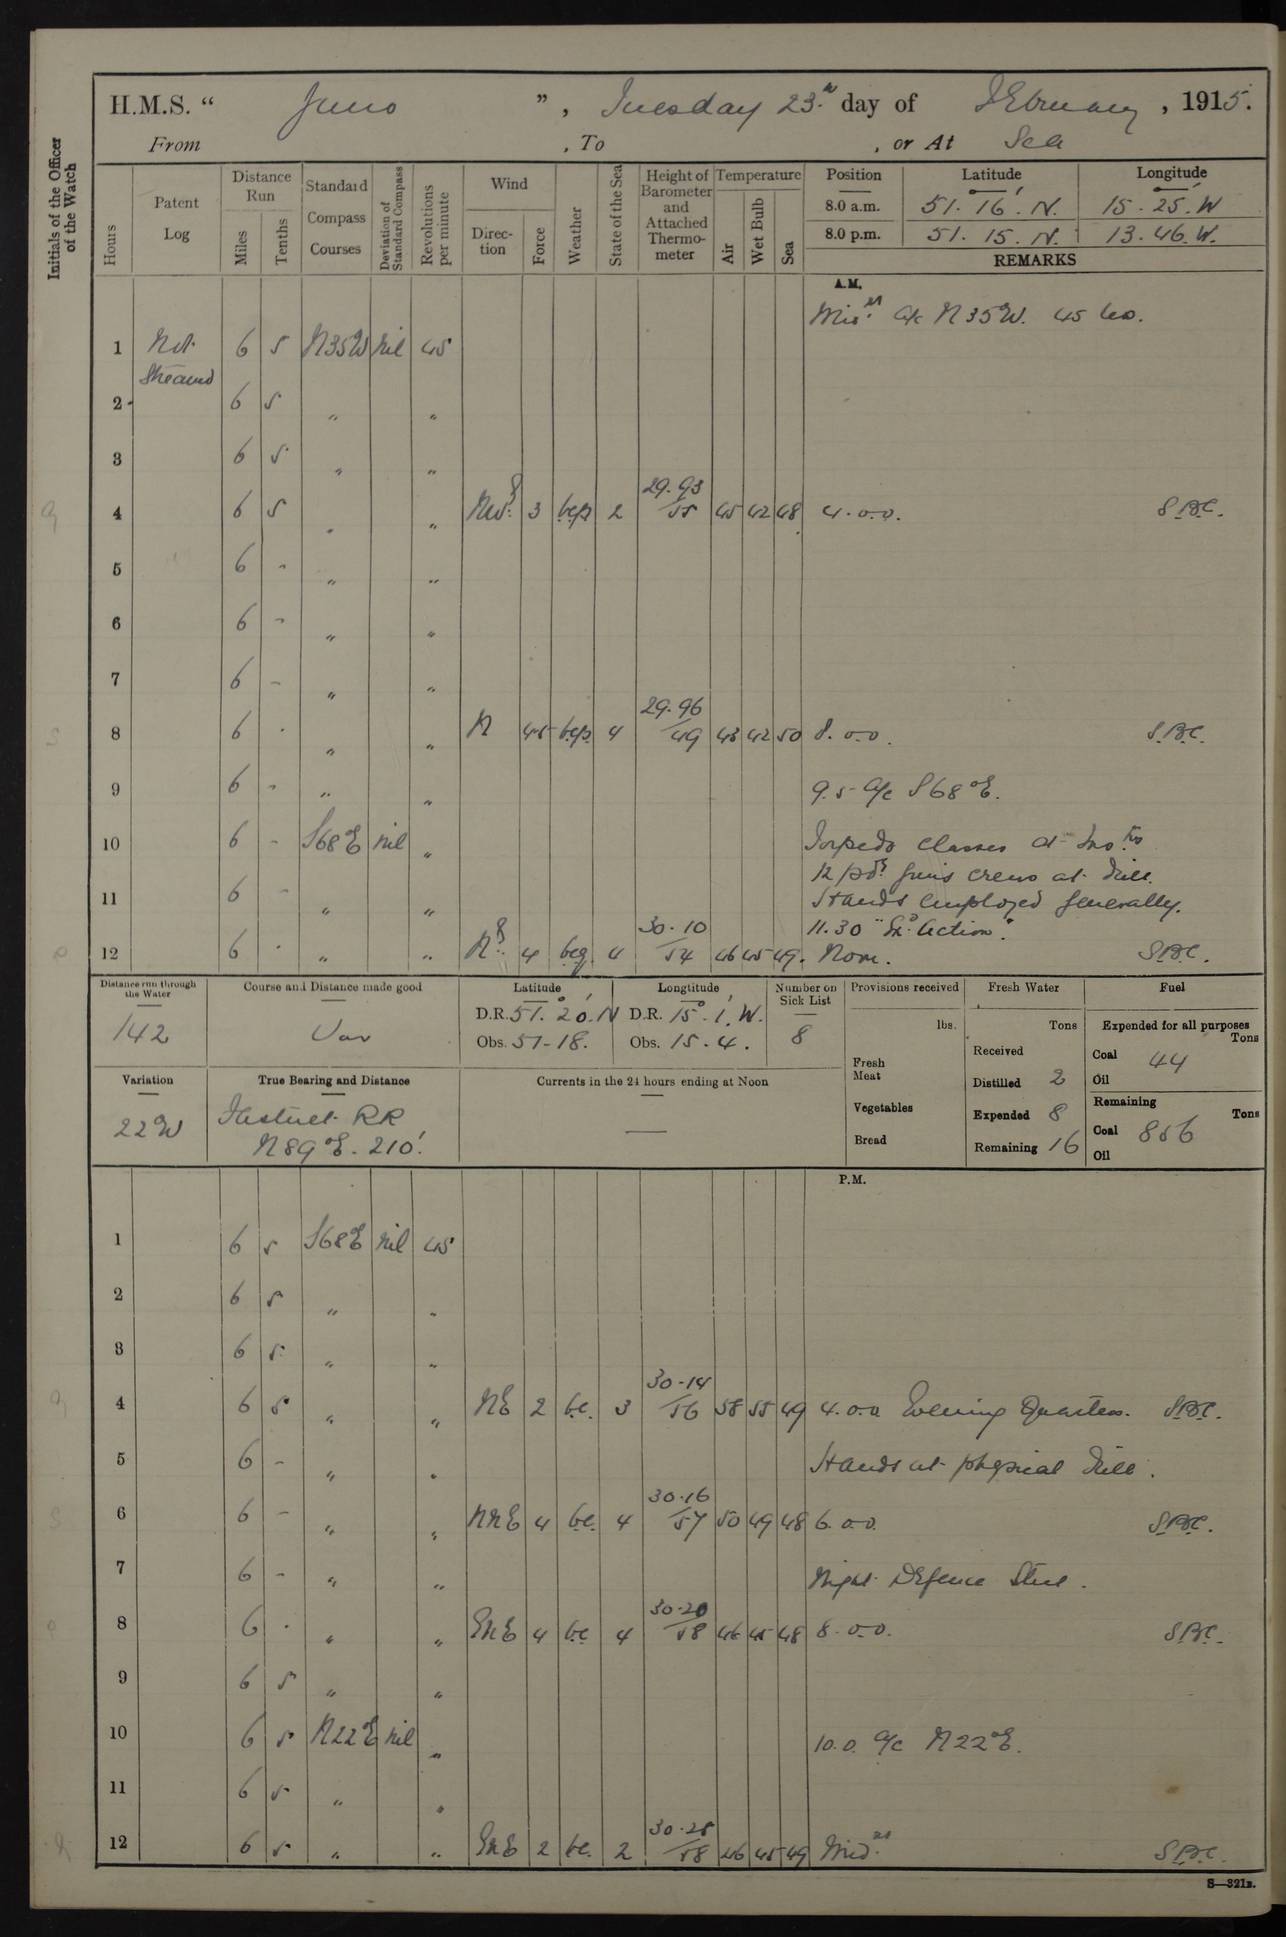 H.M.S. “ Juno ”, Tuesday 23rd day of February, 1915.
From , To , or At Sea
Initials of the Officer of the Watch
Hours
Patent Log
Distance Run
Miles
Tenths
Standard Compass Courses
Deviation of Standard Compass
Revolutions per minute
Wind
Direction
Force
Weather
State of the Sea
Height of Barometer and Attached Thermometer
Temperature
Air
Wet Bulb
Sea
Position Latitude Longitude
8.0 a.m. 51. 16'. N. 15. 25. W
8.0 p.m. 51. 15. N. 13. 46. W.
REMARKS
A.M.
Midt. A/c N35W. 45 revs.
1 Not 6 5 N35W nil 45
Streamed
2 6 5 " "
3 6 5 " "
4 6 5 " " 3 bcp 2 29.93/55 45 42 48 4.0.0. S.B.C.
5 6 - " "
6 6 - " "
7 6 - " "
8 6 - " " N 4.5 bcp 4 29.96/49 43 42 50 8.0.0. S.B.C.
9 6 - " " 9.5 A/c S68°E.
10 6 - S68°E nil " Torpedo classes at Inst.
12 pdr guns crews at drill.
11 6 - " " Hands employed generally.
11.30 "Ex. Action".
12 6 - " " 4 bcq 4 30.10/54 46 45 49. Noon. S.B.C.
Distance run through the Water
142
Course and Distance made good
Var
Latitude
D.R. 51° 20' N
Obs. 51-18.
Longtitude
D.R. 15° 1' W.
Obs. 15.4.
Number on Sick List
8
Provisions received
lbs.
Fresh Meat
Vegetables
Bread
Fresh Water
Tons
Received
Distilled 2
Expended 8
Remaining 16
Fuel
Expended for all purposes
Tons
Coal 44
Oil
Remaining
Tons
Coal 856
Oil
Variation
22W
True Bearing and Distance
Fastnet RR
N89°E. 210'.
Currents in the 24 hours ending at Noon
P.M.
1 6 5 S68°E nil 45
2 6 5 " "
3 6 5 " "
4 6 5 " " NE 2 bc. 3 30.14/56 58 55 49 4.0.0 Evening Quarters. S.B.C.
5 6 - " " Hands at physical drill.
6 6 - " " NNE 4 bc. 4 30.16/57 50 49 48 6.0.0. S.B.C.
7 6 - " " Night Defence Stns.
8 6 - " " ENE 4 bc 4 30.20/58 46 45 48 8.0.0. S.B.C.
9 6 5 " "
10 6 5 N22°E nil " 10.0. A/c N22°E.
11 6 5 " "
12 6 5 " " ENE 2 bc. 2 30.25/58 46 45 49 Midt. S.B.C.
S—321B.